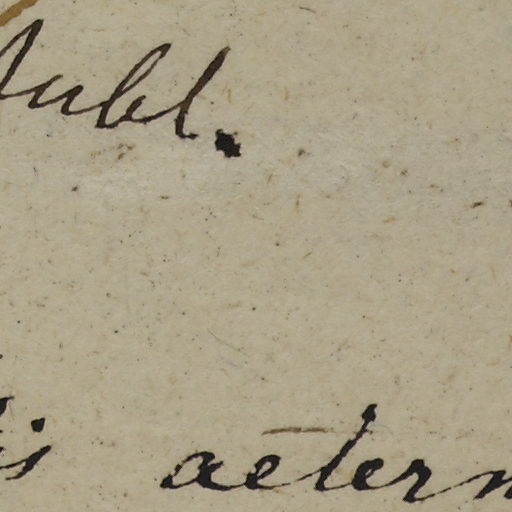 Aubl.
is aetern